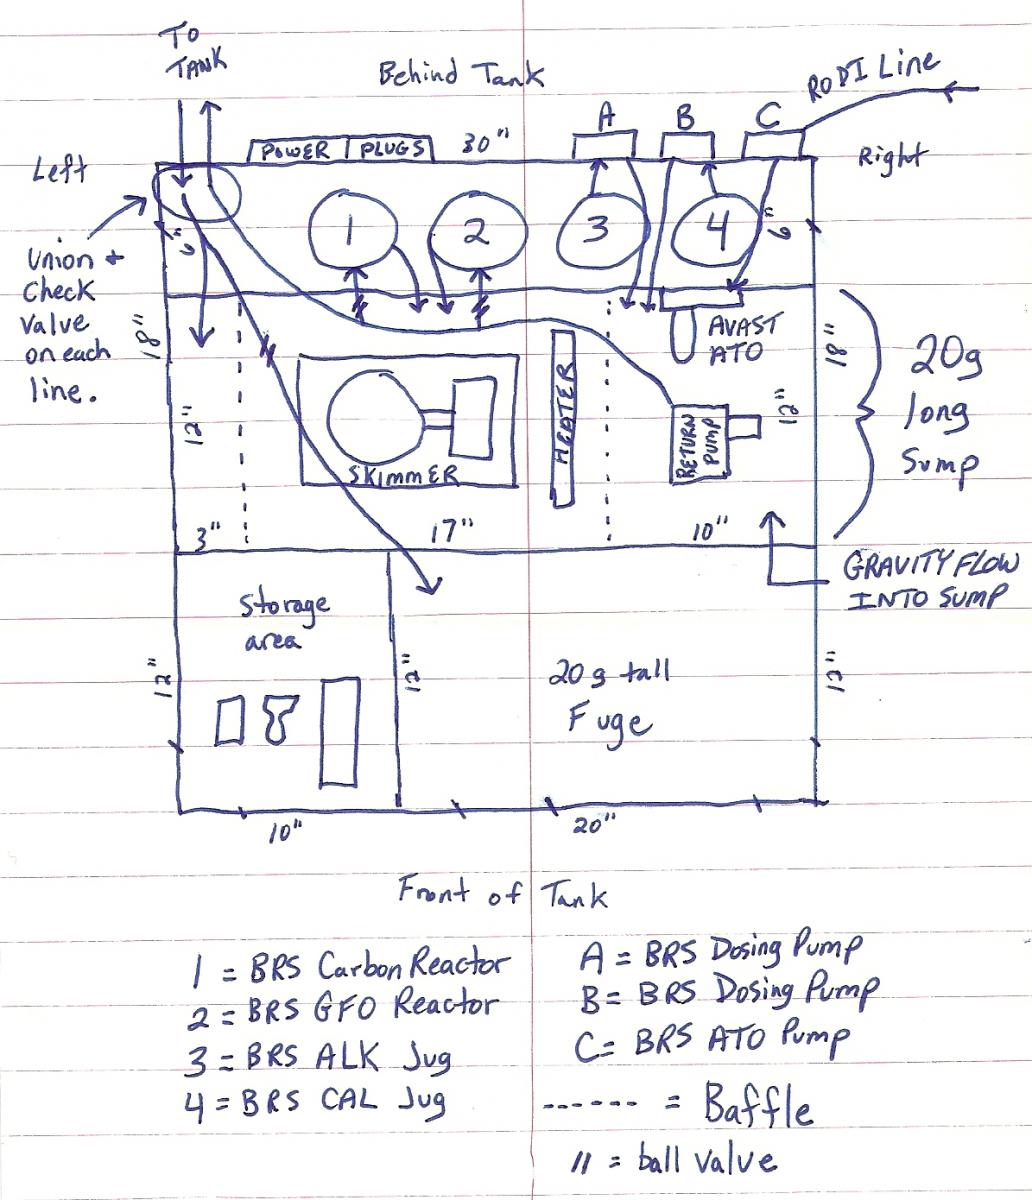 TO
TANK
Behind Tank
RODI Line
A
B
C
POWER PLUGS
30"
Left
Right
1
2
3
4
6"
6"
Union +
Check
Valve
on each
line.
18"
12"
AVAST
ATO
18"
12"
20g
long
Sump
HEATER
RETURN
PUMP
SKIMMER
3"
17"
10"
GRAVITY FLOW
INTO SUMP
Storage
area
12"
12"
20g tall
Fuge
12"
10"
20"
Front of Tank
1 = BRS Carbon Reactor
2 = BRS GFO Reactor
3 = BRS ALK Jug
4 = BRS CAL Jug
A = BRS Dosing Pump
B = BRS Dosing Pump
C = BRS ATO Pump
------ = Baffle
// = ball valve